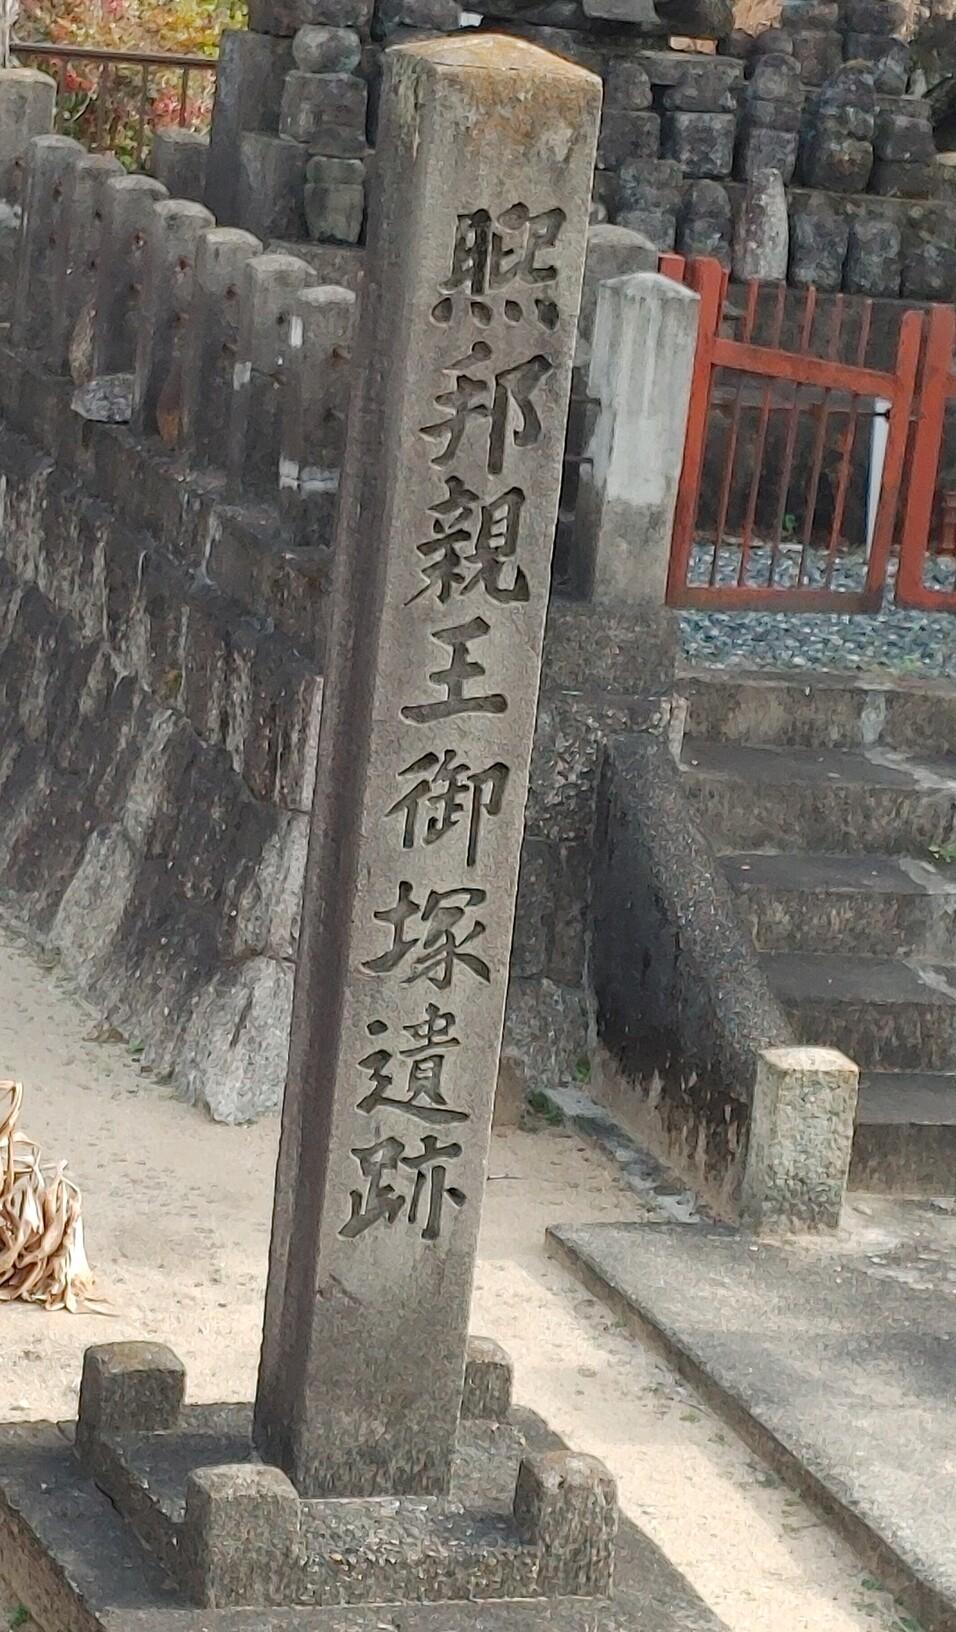 熈邦親王御塚遺跡